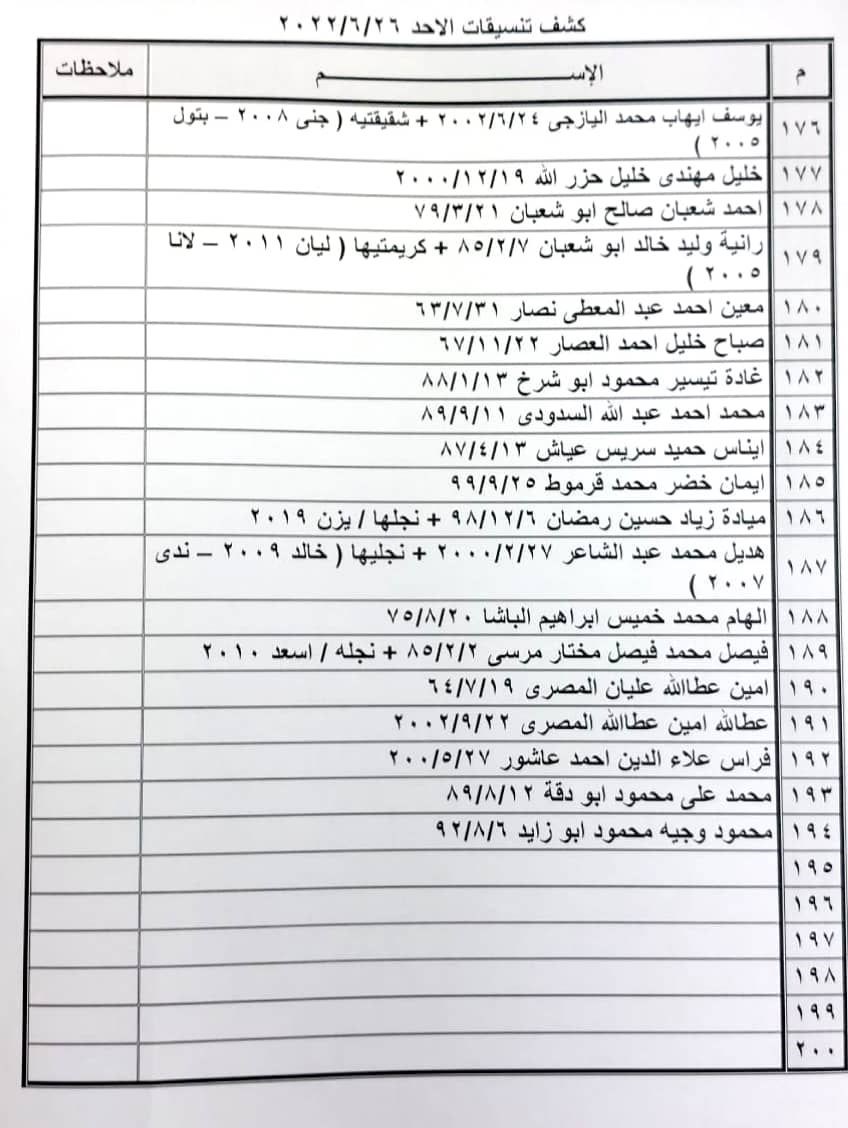 كشف تنسيقات الاحد ٢٠٢٢/٦/٢٦
م الإســــــم ملاحظات
١٧٦ يوسف ايهاب محمد اليازجى ٢٠٠٢/٦/٢٤ + شقيقتيه ( جنى ٢٠٠٨ – بتول
٢٠٠٥ )
١٧٧ خليل مهندى خليل حزر الله ٢٠٠٠/١٢/١٩
١٧٨ احمد شعبان صالح ابو شعبان ٧٩/٣/٢١
١٧٩ رانية وليد خالد ابو شعبان ٨٥/٢/٧ + كريمتيها ( ليان ٢٠١١ – لانا
٢٠٠٥ )
١٨٠ معين احمد عبد المعطى نصار ٦٣/٧/٣١
١٨١ صباح خليل احمد العصار ٦٧/١١/٢٢
١٨٢ غادة تيسير محمود ابو شرخ ٨٨/١/١٣
١٨٣ محمد احمد عبد الله السدودى ٨٩/٩/١١
١٨٤ ايناس حميد سريس عياش ٨٧/٤/١٣
١٨٥ ايمان خضر محمد قرموط ٩٩/٩/٢٥
١٨٦ ميادة زياد حسين رمضان ٩٨/١٢/٦ + نجلها / يزن ٢٠١٩
١٨٧ هديل محمد عبد الشاعر ٢٠٠٠/٢/٢٧ + نجليها ( خالد ٢٠٠٩ – ندى
٢٠٠٧ )
١٨٨ الهام محمد خميس ابراهيم الباشا ٧٥/٨/٢٠
١٨٩ فيصل محمد فيصل مختار مرسى ٨٥/٢/٢ + نجله / اسعد ٢٠١٠
١٩٠ امين عطاالله عليان المصرى ٦٤/٧/١٩
١٩١ عطالله امين عطاالله المصرى ٢٠٠٢/٩/٢٢
١٩٢ فراس علاء الدين احمد عاشور ٢٠٠/٥/٢٧
١٩٣ محمد على محمود ابو دقة ٨٩/٨/١٢
١٩٤ محمود وجيه محمود ابو زايد ٩٢/٨/٦
١٩٥
١٩٦
١٩٧
١٩٨
١٩٩
٢٠٠